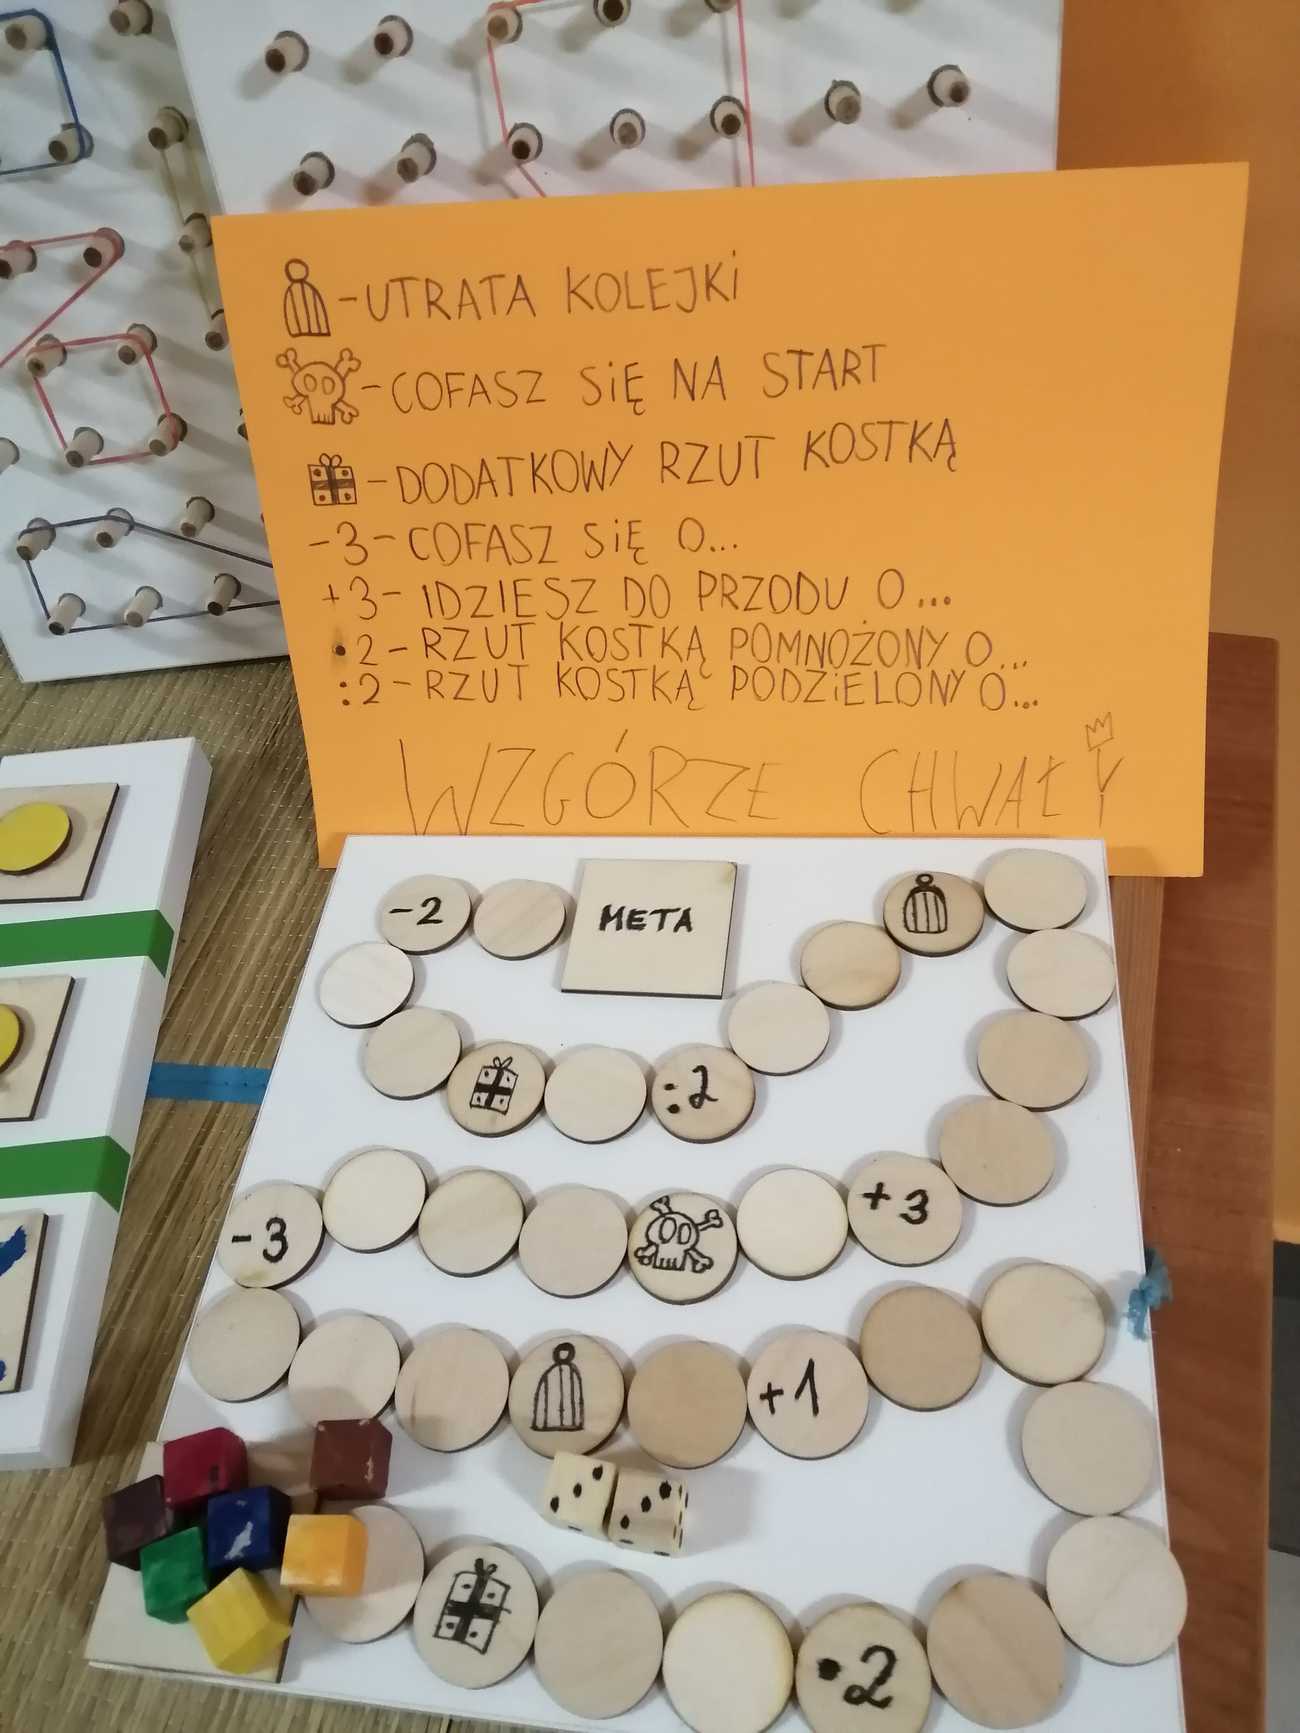 -UTRATA KOLEJKI
-COFASZ SIĘ NA START
-DODATKOWY RZUT KOSTKĄ
-3-COFASZ SIĘ O...
+3-IDZIESZ DO PRZODU O...
•2-RZUT KOSTKĄ POMNOŻONY O...
:2-RZUT KOSTKĄ PODZIELONY O...
WZGÓRZE CHWAŁY
-2
META
:2
-3
+3
+1
•2